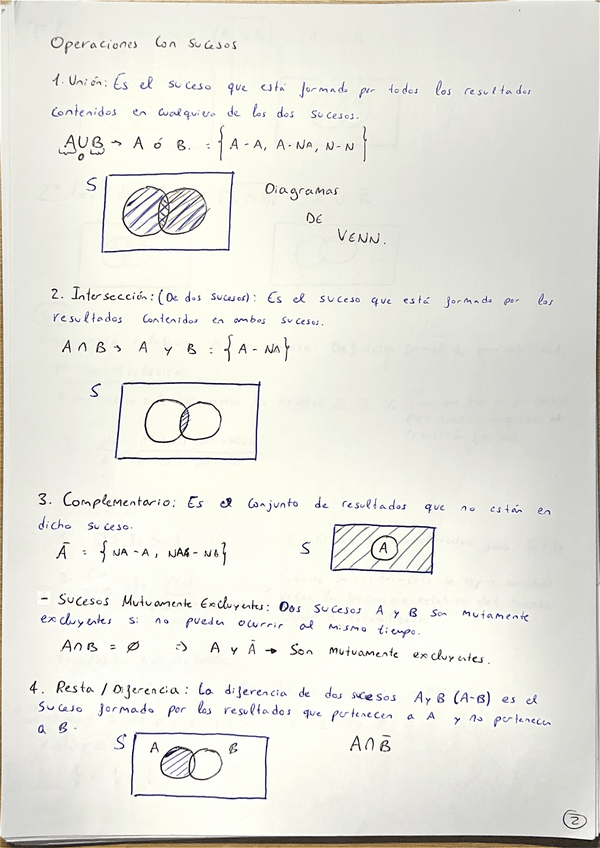 Operaciones con sucesos
1. Unión: Es el suceso que está formado por todos los resultados
contenidos en cualquiera de los dos sucesos.
A∪B → A ó B. = { A-A, A-NA, N-N }
o
S
Diagramas
DE
VENN.
2. Intersección: (De dos sucesos): Es el suceso que está formado por los
resultados contenidos en ambos sucesos.
A∩B → A y B = { A-NA }
S
3. Complementario: Es el conjunto de resultados que no están en
dicho suceso.
Ā = { NA-A, NA-NA }
S
A
- Sucesos Mutuamente Excluyentes: Dos sucesos A y B son mutamente
excluyentes si no pueden ocurrir al mismo tiempo.
A∩B = ∅ ⇒ A y Ā → Son mutuamente excluyentes.
4. Resta / Diferencia: La diferencia de dos sucesos A y B (A-B) es el
suceso formado por los resultados que pertenecen a A y no pertenecen
a B.
S A B
A∩B̄
2